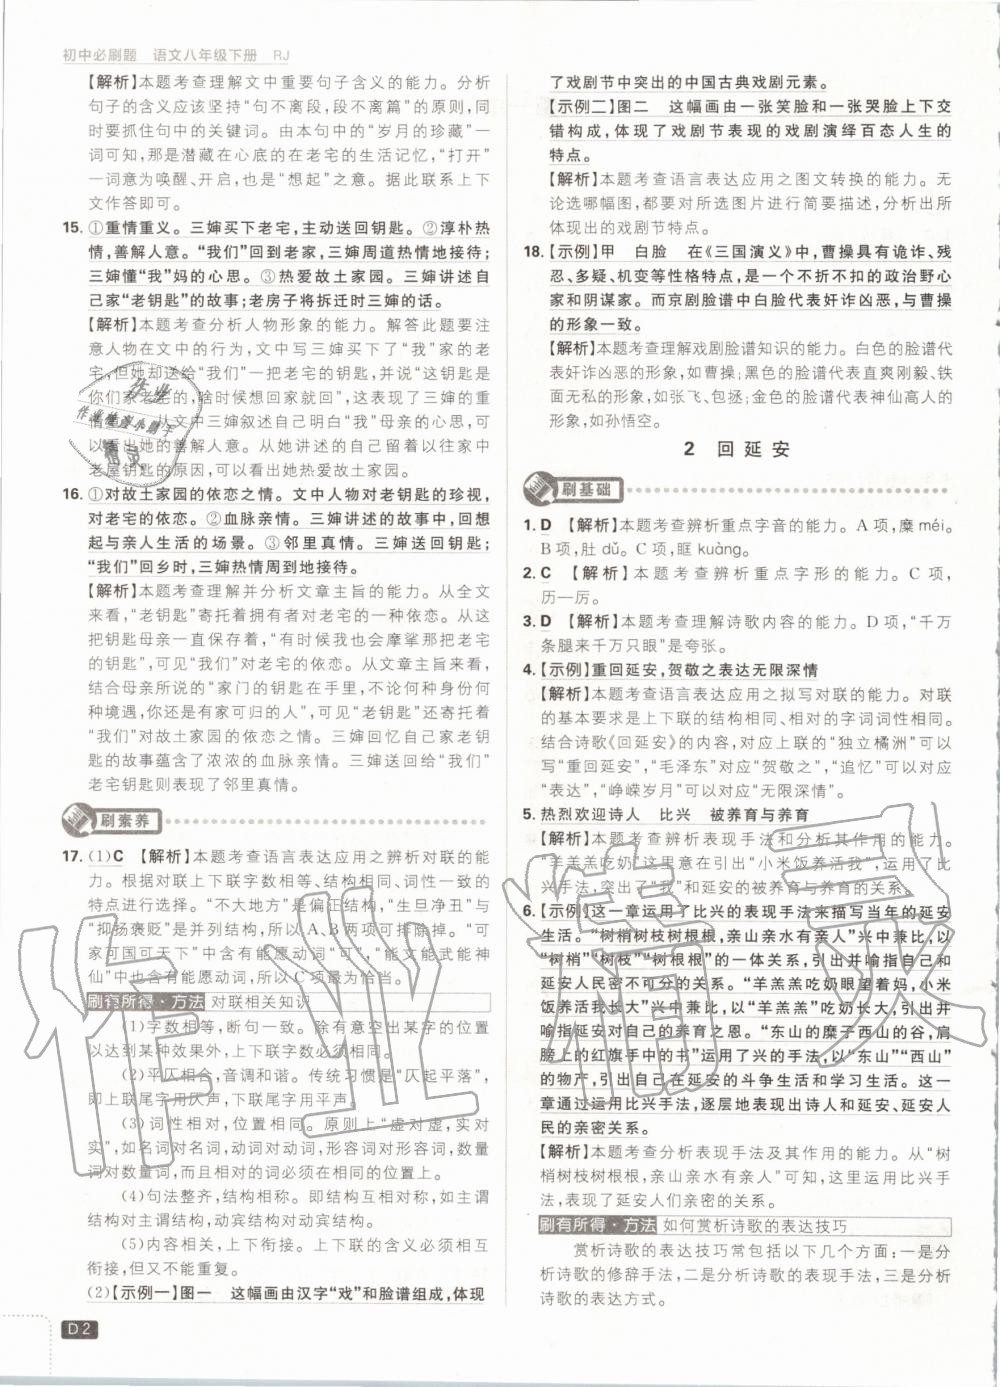 初中必刷题 语文八年级下册 RJ
【解析】本题考查理解文中重要句子含义的能力。分析
句子的含义应该坚持“句不离段,段不离篇”的原则,同
时要抓住句中的关键词。由本句中的“岁月的珍藏”一
词可知,那是潜藏在心底的在老宅的生活记忆,“打开”
一词意为唤醒、开启,也是“想起”之意。据此联系上下
文作答即可。
15. ①重情重义。三婶买下老宅,主动送回钥匙。②淳朴热
情,善解人意。“我们”回到老家,三婶周道热情地接待;
三婶懂“我”妈的心思。③热爱故土家园。三婶讲述自
己家“老钥匙”的故事;老房子将拆迁时三婶的话。
【解析】本题考查分析人物形象的能力。解答此题要注
意人物在文中的行为,文中写三婶买下了“我”家的老
宅,但她却送给“我们”一把老宅的钥匙,并说“这钥匙是
你们家老宅的,啥时候想回家就回”,这表现了三婶的重情
重义。从文中三婶叙述自己明白“我”母亲的心思,可
以看出她的善解人意。从她讲述的自己以前从家中
老屋钥匙的故事,可以看出她热爱故土家园。
16. ①对故土家园的依恋之情。文中人物对老钥匙的珍视,
对老宅的依恋。②血脉亲情。三婶讲述的故事中,回想
起与亲人生活的场景。③邻里真情。三婶送回钥匙;
“我们”回乡时,三婶热情周到地接待。
【解析】本题考查理解并分析文章主旨的能力。从全文
来看,“老钥匙”寄托着拥有者对老宅的一种依恋。从这
把钥匙母亲一直保存着,“有时候我也会摩挲那把老宅
的钥匙”,可见“我们”对老宅的依恋。从文章主旨来看,
结合母亲所说的“家门的钥匙在手里,不论碰到何种何
种境遇,你还是有家可归的人”,可见“老钥匙”还寄托着
“我们”对故土家园的依恋之情。三婶回忆自己家老钥
匙的故事蕴含了浓浓的血脉亲情。三婶送回给“我们”
老宅钥匙则表现了邻里真情。
刷素养
17. (1)C 【解析】本题考查语言表达应用之辨析对联的能
力。根据对联上下联字数相等、结构相同、词性一致的
特点进行分析。“不大地方”是偏正结构,“生旦净丑”与
“抑扬褒贬”是并列结构,所以A、B两项可排除掉。“可
家可国可天下”中含有能愿动词“可”,“能文能武能神
仙”中也含有能愿动词,所以C项最为恰当。
刷有所得·方法 对联相关知识
(1)字数相等,断句一致。除有意空出某字的位置
以达到某种效果外,上下联字数必须相同。
(2)平仄相合,音调和谐。传统习惯是“仄起平落”,
即上联尾字用仄声,下联尾字用平声。
(3)词性相对,位置相同。原则上“虚对虚,实对
实”,如名词对名词,动词对动词,形容词对形容词,数量
词对数量词,而且相对的词必须在相同的位置上。
(4)句法整齐,结构相称。即结构互相对称,如主谓
结构对主谓结构,动宾结构对动宾结构。
(5)内容相关,上下衔接。上下联的含义必须相互
衔接,但又不能重复。
(2)【示例一】图一 这幅画由汉字“戏”和脸谱组成,体现
D2
了戏剧节中突出的中国古典戏剧元素。
【示例二】图二 这幅画由一张笑脸和一张哭脸上下交
错构成,体现了戏剧节表现的戏剧演绎百态人生的
特点。
【解析】本题考查语言表达应用之图文转换的能力。无
论选哪幅图,都要对所选图片进行简要描述,分析出所
体现出的戏剧节特点。
18. 【示例】甲 白脸 在《三国演义》中,曹操具有诡诈、残
忍、多疑、机变等性格特点,是一个不折不扣的政治野心
家和阴谋家。而京剧脸谱中白脸代表奸诈凶恶,与曹操
的形象一致。
【解析】本题考查理解戏剧脸谱知识的能力。白色的脸谱代
表奸诈凶恶的形象,如曹操;黑色的脸谱代表直爽刚毅、铁
面无私的形象,如张飞、包拯;金色的脸谱代表神仙高人的
形象,如孙悟空。
2 回延安
刷基础
1. D 【解析】本题考查辨析重点字音的能力。A项,糜méi。
B项,肚dǔ。C项,眶kuàng。
2. C 【解析】本题考查辨析重点字形的能力。C项,
历—厉。
3. D 【解析】本题考查理解诗歌内容的能力。D项,“千万
条腿来千万只眼”是夸张。
4. 【示例】重回延安,贺敬之表达无限深情
【解析】本题考查语言表达应用之拟写对联的能力。对联
的基本要求是上下联的结构相同、相对的字词词性相同。
结合诗歌《回延安》的内容,对应上联的“独立橘洲”可以
写“重回延安”,“毛泽东”对应“贺敬之”,“追忆”可以对应
“表达”,“峥嵘岁月”可以对应“无限深情”
5. 热烈欢迎诗人 比兴 被养育与养育
【解析】本题考查辨析表现手法和分析其作用的能力。
“羊羔羔吃奶”这里意在引出“小米饭养活我”,运用了比
兴手法,突出了“我”和延安的被养育与养育的关系。
6. 【示例】这一章运用了比兴的表现手法来描写当年的延安
生活。“树梢树枝树根根,亲山亲水有亲人”兴中兼比,以
“树梢”“树枝”“树根根”的一体关系,引出并喻指自己和
延安人民密不可分的关系。“羊羔羔吃奶眼望着妈,小米
饭养活我长大”兴中兼比,以“羊羔羔”吃奶长大,引出并
喻指延安对自己的养育之恩。“东山的糜子西山的谷,肩
膀上的红旗手中的书”运用了兴的手法,以“东山”“西山”
的物产,引出自己在延安的斗争生活和学习生活。这一
章通过运用比兴手法,逐层地表现出诗人和延安、延安人
民的亲密关系。
【解析】本题考查分析表现手法及其作用的能力。从“树
梢树枝树根根,亲山亲水有亲人”可知,这里运用比兴手
法,表现了延安人们亲密的关系。
刷有所得·方法 如何赏析诗歌的表达技巧
赏析诗歌的表达技巧常包括以下几个方面:一是分
析诗歌的修辞手法,二是分析诗歌的表现手法,三是分析
诗歌的表达方式。
作业精灵